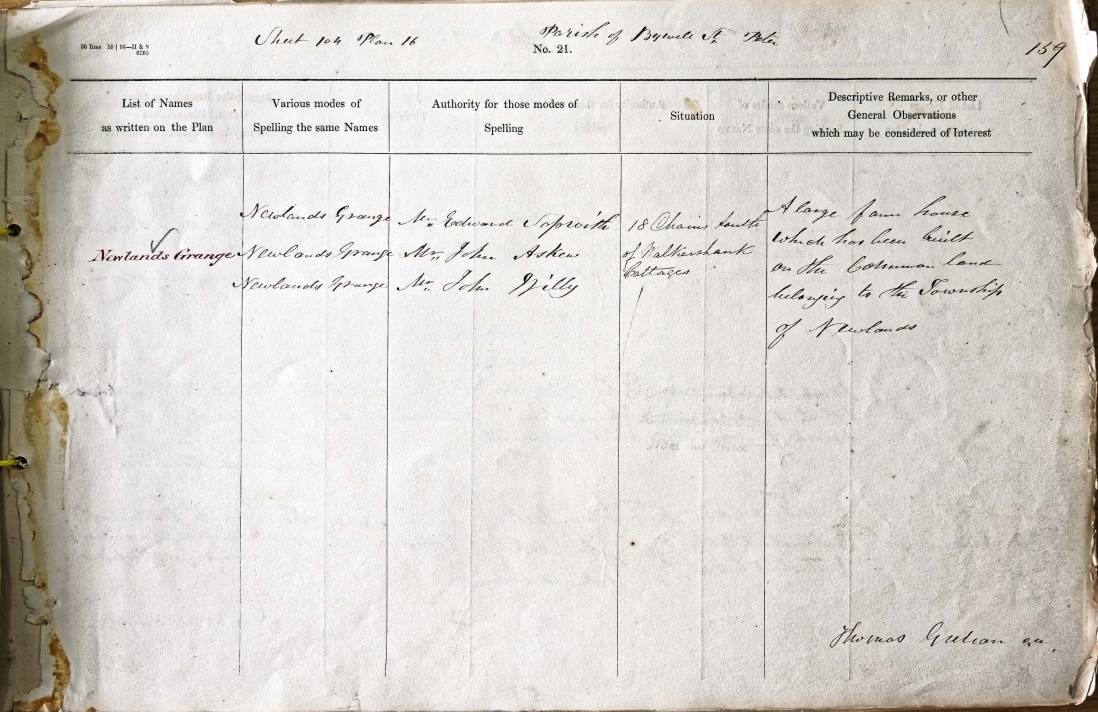 Sheet 104 Plan 16
Parish of Bywell St. Peter
159
36 Rms 10 | 56—H & S
6205
No. 21.
List of Names
as written on the Plan
Various modes of
Spelling the same Names
Authority for those modes of
Spelling
Situation
Descriptive Remarks, or other
General Observations
which may be considered of Interest
Newlands Grange
Newlands Grange
Newlands Grange
Newlands Grange
Mr. Edward Sopwith
Mr. John Askew
Mr. John
18 Chains South
of Walkershank
Cottages
A large farm house
which has been built
on the Common land
belonging to the Township
of Newlands
Thomas